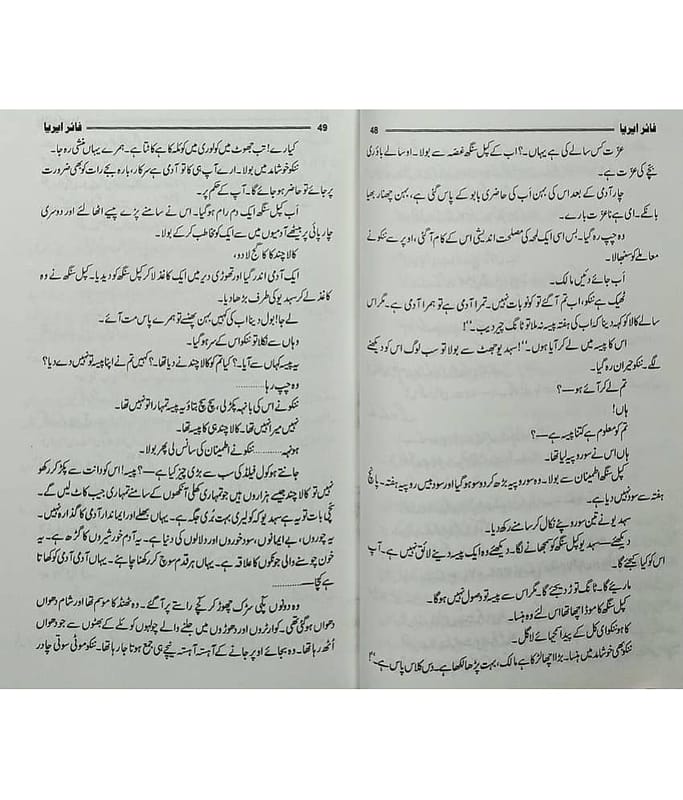 فائر ایریا 48
عزت کس سالے کی ہے یہاں۔؟ اب کے کپل سنگھ غصہ سے بولا۔ او سالے باؤری
بچے کی عزت ہے۔
چار آدمی کے بعد اس کی بہن اَب کی حاضری بابو کے پاس گئی ہے، بہن چھنار بھیا
بانکے۔ ای ہے نا عزت بارے۔
وہ چپ رہ گیا۔ بس اسی ایک لمحہ کی مصلحت اندیشی اس کے کام آ گئی، اوپر سے ننکو نے
معاملے کو سنبھالا۔
اَب جائے دئیں مالک۔
ٹھیک ہے ننکو، اب تم آ گئے تو کونو بات نہیں۔ تمرا آدمی ہے تو ہمرا آدمی ہے۔ مگر اس
سالے کالا کو کہہ دینا کہ اب کی ہفتہ پیسہ نہ ملا تو ٹانگ چیر دیب۔‘‘!
اس کا پیسہ میں لے کر آیا ہوں۔‘‘! سہدیو جھٹ سے بولا تو سب لوگ اس کو دیکھنے
لگے۔ ننکو حیران رہ گیا۔
تم لے کر آئے ہو—؟
ہاں!
تم کو معلوم ہے کتنا پیسہ ہے—؟
ہاں اس نے سو روپیہ لیا تھا۔
کپل سنگھ اطمینان سے بولا۔ وہ سو روپیہ بڑھ کر دو سو ہو گیا اور سود بیس روپیہ ہفتہ۔ پانچ
ہفتہ سے سود نہیں دیا ہے۔
سہدیو نے تین سو روپے نکال کر سامنے رکھ دیا۔
دیکھئے— سہدیو کپل سنگھ کو سمجھانے لگا۔ دیکھئے وہ ایک پیسہ دینے لائق نہیں ہے۔ آپ
اس کو کیا کیجئے گا۔
ماریئے گا۔ ٹانگ توڑ دیجئے گا۔ مگر اس سے پیسہ تو وصول نہیں ہو گا۔
کپل سنگھ کا موڈ اچھا تھا اس لئے وہ ہنسا۔
کا ہو ننکو ای کل کے پیدا آچا ئے لاگل۔
ننکو بھی خوشامد میں ہنسا۔ بڑا اچھا لڑکا ہے مالک، بہت پڑھا لکھا ہے۔ دس کلاس پاس ہے۔‘‘!
49 فائر ایریا
کیا رے! تب جھوٹ میں کولوری میں کوئلہ کاہے کاٹتا ہے۔ ہمرے یہاں منشی رہ جا۔
ننکو خوشامد میں بولا۔ ارے آپ ہی کا تو آدمی ہے سرکار، بارہ بجے رات کو بھی ضرورت
پر جائے تو حاضر ہو جائے گا۔ آپ کے حکم پر۔
اَب کپل سنگھ ایک دم رام ہو گیا۔ اس نے سامنے پڑے پیسے اٹھا لئے اور دوسری
چارپائی پر بیٹھے آدمیوں میں سے ایک کو مخاطب کر کے بولا۔
کالا چند کا کاگج لا دو،
ایک آدمی اندر گیا اور تھوڑی دیر میں ایک کاغذ لا کر کپل سنگھ کو دیدیا۔ کپل سنگھ نے وہ
کاغذ لے کر سہدیو کی طرف بڑھا دیا۔
لے جا! بول دینا اب کی کہیں بہن پھنسے تو ہمرے پاس مت آئے۔
وہاں سے نکلا تو ننکو اس کے سر ہو گیا۔
یہ پیسہ کہاں سے آیا۔؟ کیا تم کو کالا چند نے دیا تھا۔؟ کہیں تم نے اپنا پیسہ تو نہیں دے دیا؟
وہ چپ رہا..........
ننکو نے اس کی بانہہ پکڑ لی، سچ سچ بتاؤ یہ پیسہ تمہارا تو نہیں تھا۔
نہیں میرا نہیں تھا۔ کالا چند ہی کا پیسہ تھا۔
ہونہہ........... ننکو نے اطمینان کی سانس لی پھر بولا۔
جانتے ہو کول فیلڈ کی سب سے بڑی چیز کیا ہے—؟ پیسہ! اس کو دانت سے پکڑ کر رکھو
نہیں تو کالا چند جیسے ہزاروں ہیں جو تمہاری کھلی آنکھوں کے سامنے تمہاری جیب کاٹ لیں گے۔
سچی بات تو یہ ہے سہدیو کہ کولیری بہت بُری جگہ ہے۔ یہاں بھلے اور ایماندار آدمی کا گذارہ نہیں۔
یہ چوروں، بے ایمانوں، سود خوروں اور دلالوں کی دنیا ہے۔ یہ آدم خور شیروں کا گڑھ ہے۔ یہ
خون چوسنے والی جونکوں کا علاقہ ہے۔ یہاں ہر قدم سوچ کر رکھنا چاہئے۔ یہاں آدمی آدمی کو کھاتا
ہے کچا—..........
وہ دونوں پکی سڑک چھوڑ کر کچے راستے پر آ گئے۔ وہ ٹھنڈ کا موسم تھا اور شام دھواں
دھواں ہو گئی تھی۔ کوارٹروں اور دھوڑوں میں جلنے والے چولہوں کوئلے کے بھٹوں سے جو دھواں
اُٹھ رہا تھا۔ وہ بجائے اوپر جانے کے آہستہ آہستہ نیچے ہی جمع ہوتا جا رہا تھا۔ ننکو موٹی سوتی چادر